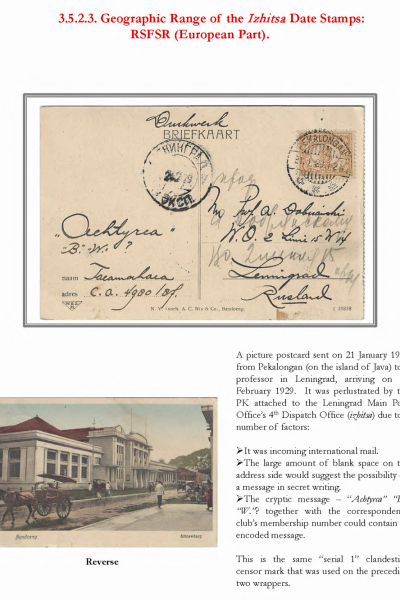 3.5.2.3. Geographic Range of the Izhitsa Date Stamps:
RSFSR (European Part).
Drukwerk
BRIEFKAART
ЛЕНИНГРАД
24.2.29
ЭКСП.
PEKALONGAN
"Achtyrca"
"B." "W." ?
naam Tacamahaca
adres C.a. 4980/
Prof. A.
W.O. 2 Linie 15
Leningrad
Rusland
A picture postcard sent on 21 January 19
from Pekalongan (on the island of Java) to
professor in Leningrad, arriving on
February 1929. It was perlustrated by t
PK attached to the Leningrad Main Po
Office's 4th Dispatch Office (izhitsa) due to
number of factors:
➢It was incoming international mail.
➢The large amount of blank space on t
address side would suggest the possibility
a message in secret writing.
➢The cryptic message – "Achtyrca" "B
"W."? together with the corresponden
club's membership number could contain
encoded message.
This is the same "serial 1" clandesti
censor mark that was used on the precedi
two wrappers.
Bandoeng
Reverse